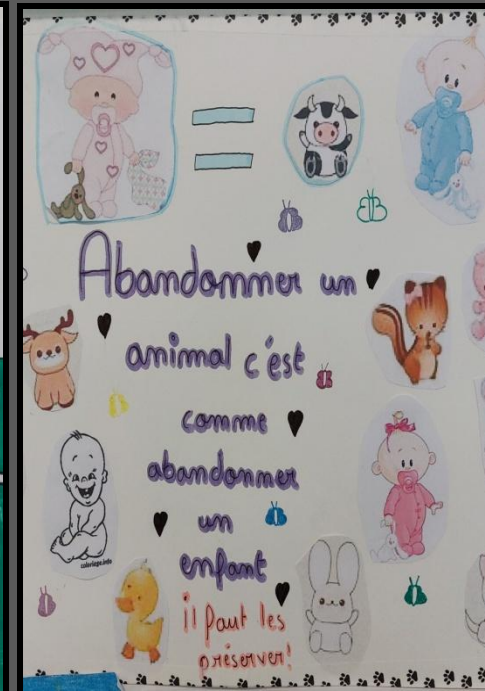 Abandonner un
animal c'est
comme
abandonner
un
enfant
il faut les
préserver!
coloriage.info